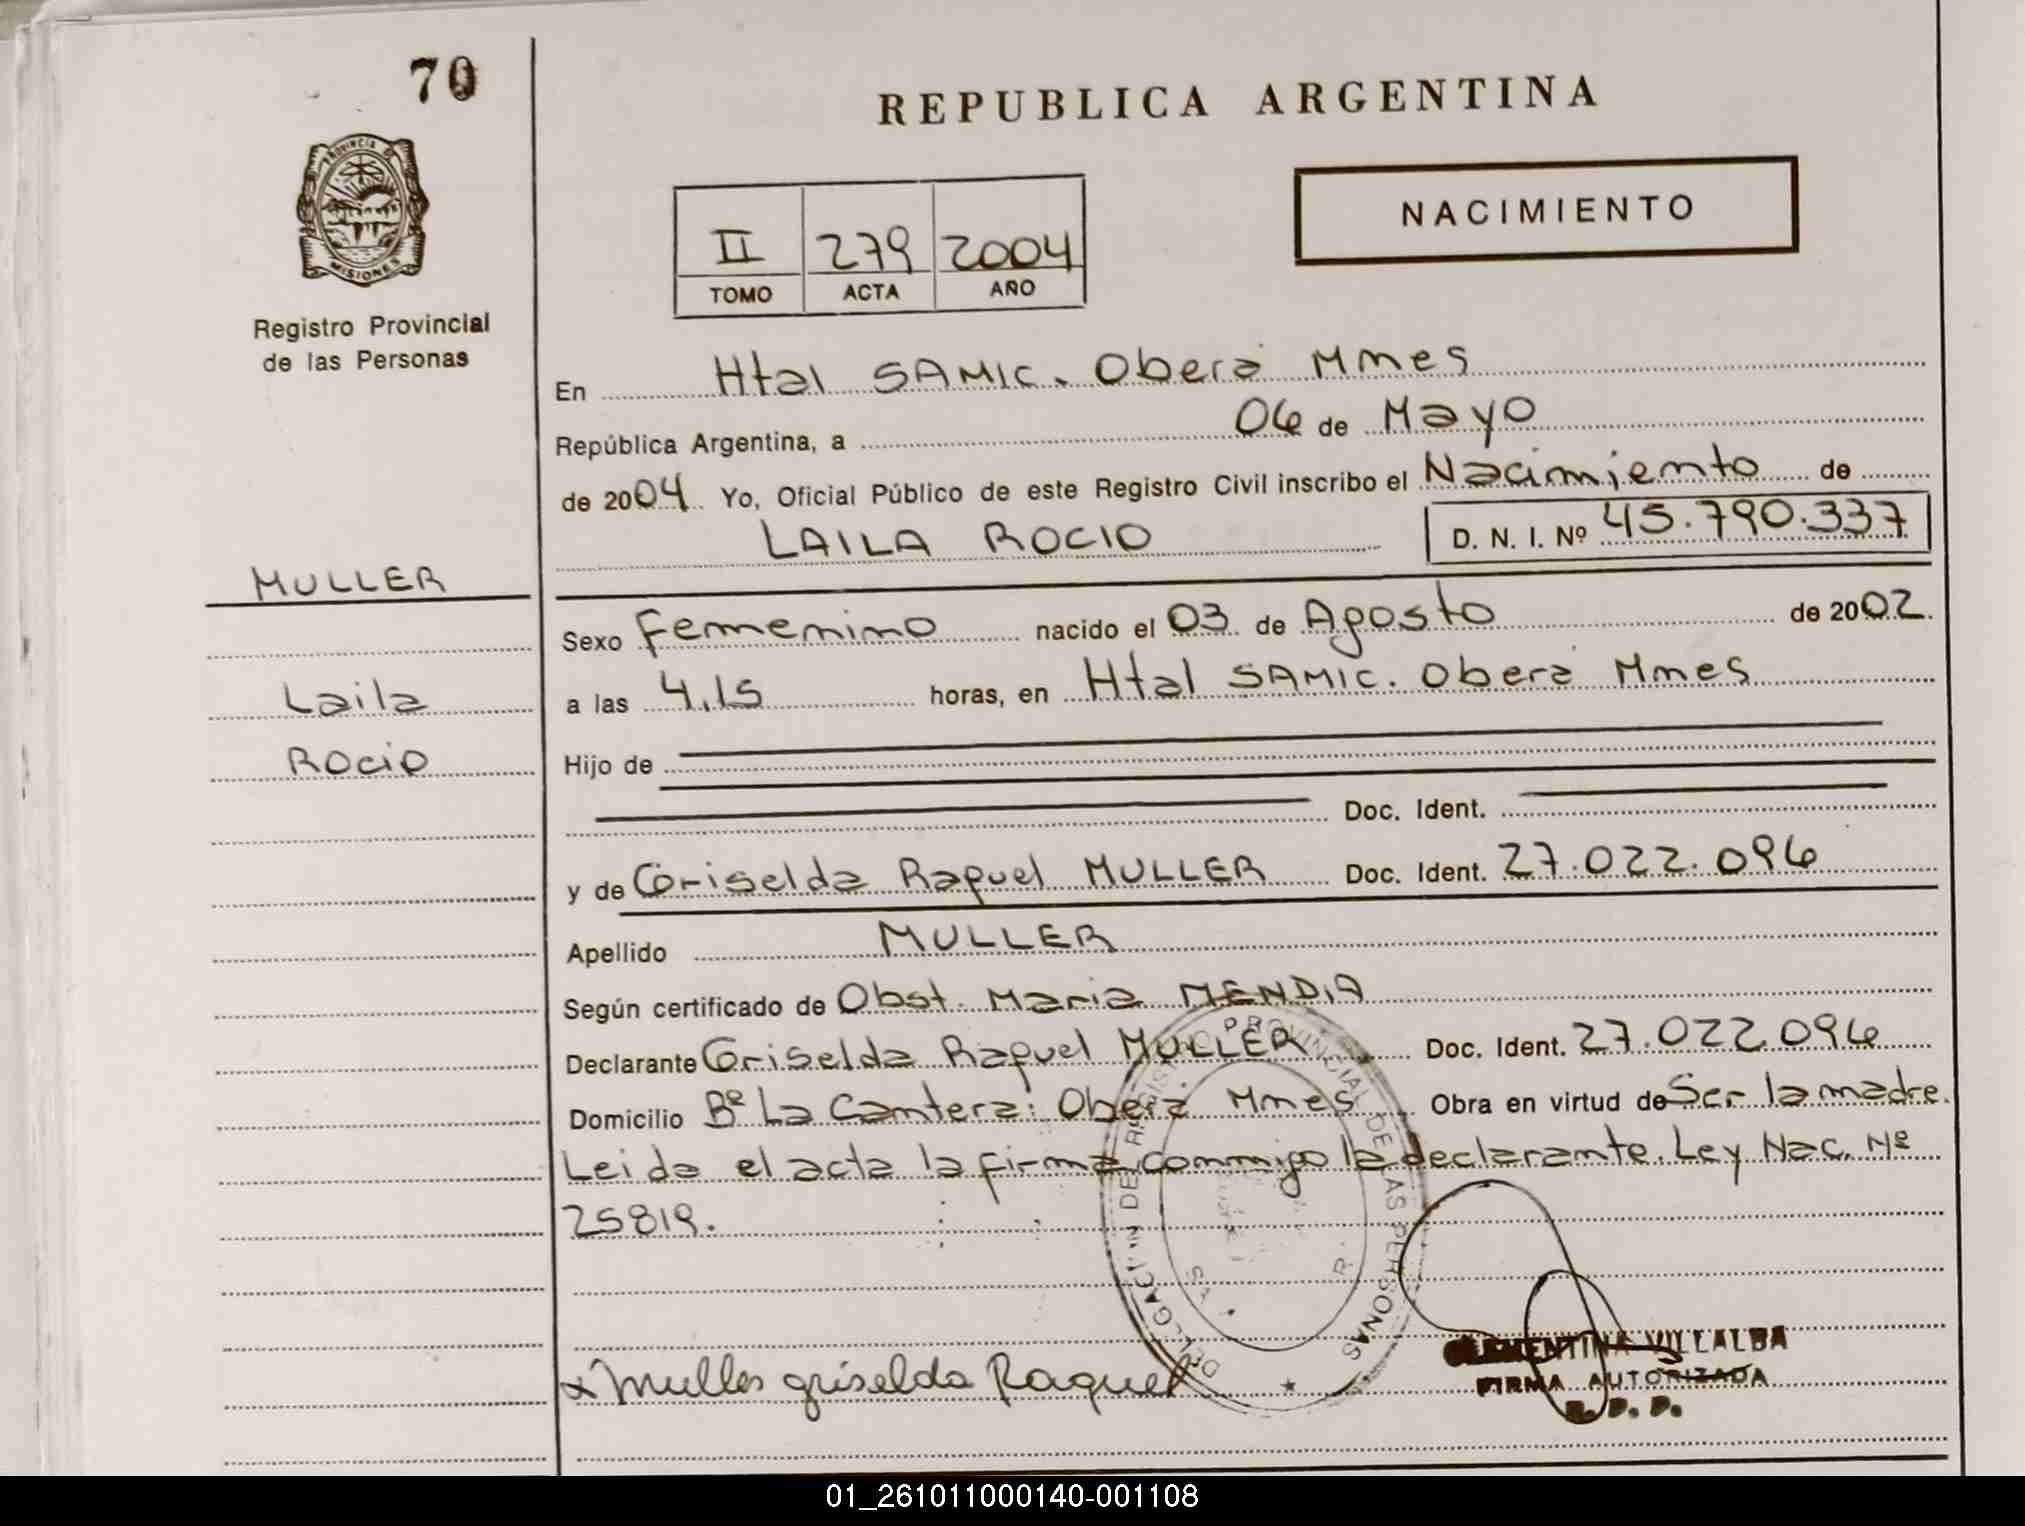 70
REPUBLICA ARGENTINA
PROVINCIA DE
MISIONES
NACIMIENTO
II 279 2004
TOMO ACTA AÑO
Registro Provincial
de las Personas
En Htal SAMIC. Oberá Mnes
República Argentina, a 06 de Mayo
de 2004. Yo, Oficial Público de este Registro Civil inscribo el Nacimiento de
LAILA ROCIO D. N. I. Nº 45.790.337
MULLER
Laila
Rocio
Sexo Femenino nacido el 03 de Agosto de 2002.
a las 4.15 horas, en Htal SAMIC. Oberá Mnes
Hijo de
Doc. Ident.
y de Griselda Raquel MULLER Doc. Ident. 27.022.096
Apellido MULLER
Según certificado de Obst. Maria MENDIA
Declarante Griselda Raquel MULLER Doc. Ident. 27.022.096
Domicilio Bº La Cantera: Oberá Mnes Obra en virtud de Ser la madre.
Leida el acta la firma conmigo la declarante. Ley Nac. Nº
25819.
DELEGACION DEL REGISTRO PROVINCIAL DE LAS PERSONAS
x Muller griselda Raquel
CLEMENTINA VILLALBA
FIRMA AUTORIZADA
R. P. P.
01_261011000140-001108